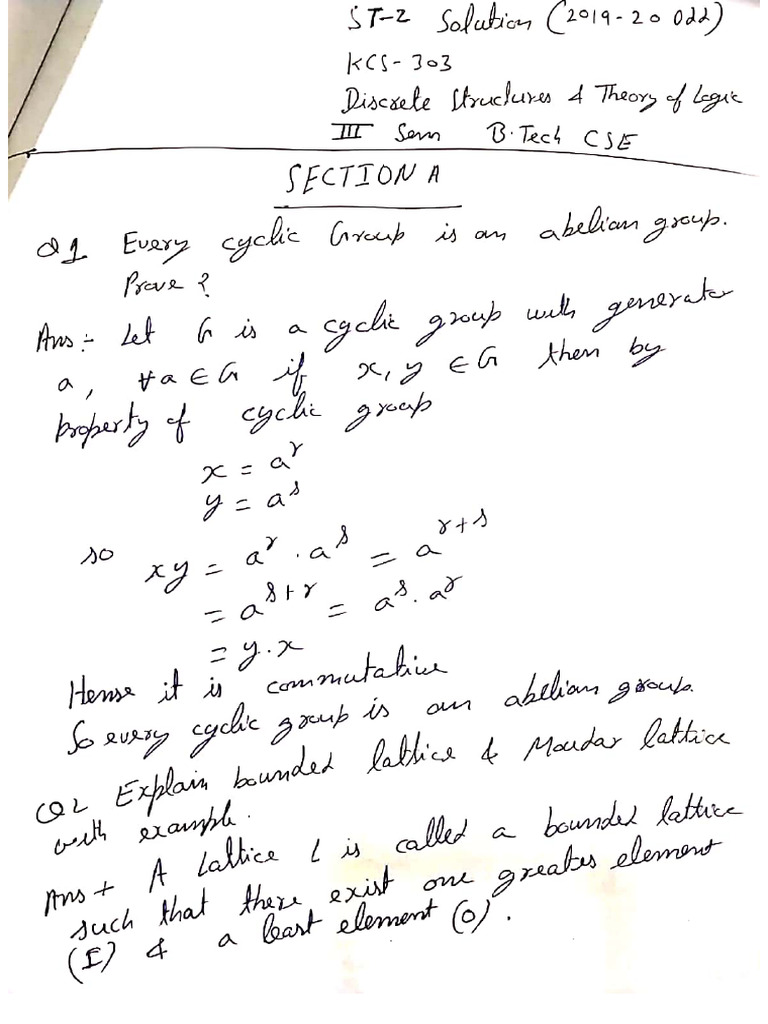 ST-2 Solution (2019-20 Odd)
KCS-303
Discrete Structures & Theory of Logic
III Sem B.Tech CSE
SECTION A
Q1 Every cyclic Group is an abelian group.
Prove ?
Ans:- Let G is a cyclic group with generator
a, ∀a ∈ G if x, y ∈ G then by
property of cyclic group
x = a^r
y = a^s
so xy = a^r . a^s = a^{r+s}
= a^{s+r} = a^s . a^r
= y.x
Hense it is commutative
So every cyclic group is an abelian group.
Q2 Explain bounded lattice & Moudar lattice
with example.
Ans+ A Lattice L is called a bounded lattice
such that there exist one greates element
(I) & a least element (0).